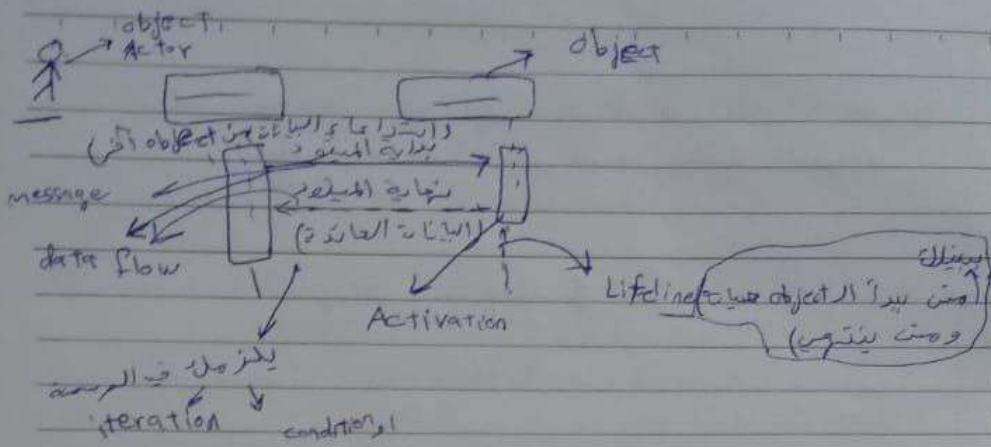 object
Actor
object
واستدعاء البيانات من object آخر)
بداية الميثود
message
نهاية الميثود
(البيانات العائدة)
data flow
Activation
Lifeline
بيبينلك
(متى يبدأ ال object حياته
ومتى ينتهي)
يلزمك في الرسمة
iteration
او condition